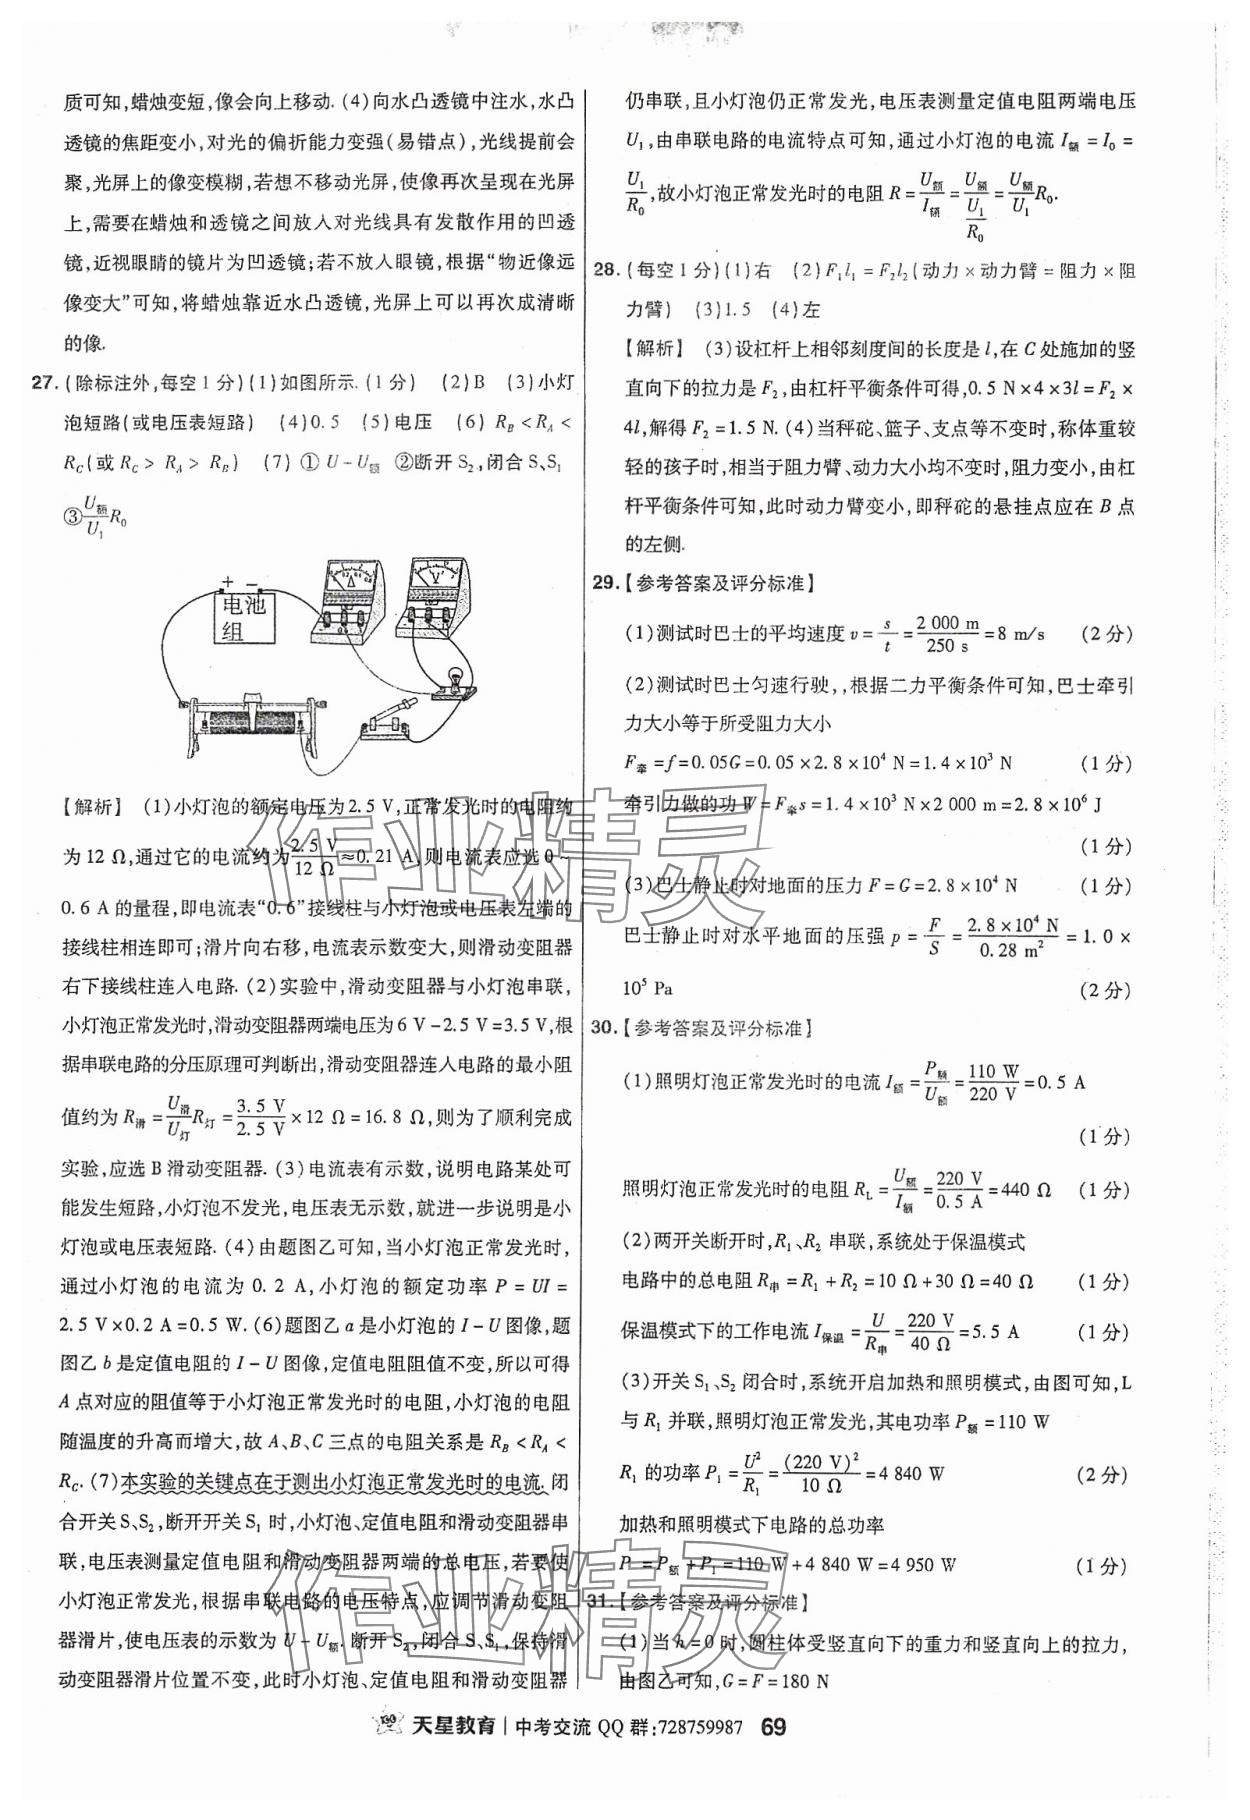 质可知,蜡烛变短,像会向上移动. (4)向水凸透镜中注水,水凸
透镜的焦距变小,对光的偏折能力变强(易错点),光线提前会
聚,光屏上的像变模糊,若想不移动光屏,使像再次呈现在光屏
上,需要在蜡烛和透镜之间放入对光线具有发散作用的凹透
镜,近视眼睛的镜片为凹透镜;若不放人眼镜,根据“物近像远
像变大”可知,将蜡烛靠近水凸透镜,光屏上可以再次成清晰
的像.
27. (除标注外,每空1分)(1)如图所示. (1分) (2)B (3)小灯
泡短路(或电压表短路) (4)0.5 (5)电压 (6) R_B<R_A<
R_C(或 R_C> R_A> R_B) (7) ①U-U额 ②断开S₂,闭合S、S₁
③U额/U₁ R₀
+ -
电池
组
A
V
【解析】 (1)小灯泡的额定电压为2.5 V,正常发光时的电阻约
为12 Ω,通过它的电流约为2.5 V/12 Ω≈0.21 A,则电流表应选0~
0.6 A的量程,即电流表“0.6”接线柱与小灯泡或电压表左端的
接线柱相连即可;滑片向右移,电流表示数变大,则滑动变阻器
右下接线柱连入电路. (2)实验中,滑动变阻器与小灯泡串联,
小灯泡正常发光时,滑动变阻器两端电压为6 V-2.5 V=3.5 V,根
据串联电路的分压原理可判断出,滑动变阻器连入电路的最小阻
值约为 R滑=U滑/U灯 R灯=3.5 V/2.5 V×12 Ω=16.8 Ω,则为了顺利完成
实验,应选B滑动变阻器. (3)电流表有示数,说明电路某处可
能发生短路,小灯泡不发光,电压表无示数,就进一步说明是小
灯泡或电压表短路. (4)由题图乙可知,当小灯泡正常发光时,
通过小灯泡的电流为0.2 A,小灯泡的额定功率 P=UI=
2.5 V×0.2 A=0.5 W. (6)题图乙a是小灯泡的I-U图像,题
图乙b是定值电阻的I-U图像,定值电阻阻值不变,所以可得
A点对应的阻值等于小灯泡正常发光时的电阻,小灯泡的电阻
随温度的升高而增大,故A、B、C三点的电阻关系是R_B<R_A<
R_C. (7)本实验的关键点在于测出小灯泡正常发光时的电流. 闭
合开关S、S₂,断开开关S₁时,小灯泡、定值电阻和滑动变阻器串
联,电压表测量定值电阻和滑动变阻器两端的总电压,若要使
小灯泡正常发光,根据串联电路的电压特点,应调节滑动变阻
器滑片,使电压表的示数为U-U额. 断开S₂,闭合S、S₁,保持滑
动变阻器滑片位置不变,此时小灯泡、定值电阻和滑动变阻器
仍串联,且小灯泡仍正常发光,电压表测量定值电阻两端电压
U₁,由串联电路的电流特点可知,通过小灯泡的电流I额=I₀=
U₁/R₀,故小灯泡正常发光时的电阻R=U额/I额=U额/(U₁/R₀)=U额/U₁ R₀.
28. (每空1分)(1)右 (2)F₁l₁=F₂l₂(动力×动力臂=阻力×阻
力臂) (3)1.5 (4)左
【解析】 (3)设杠杆上相邻刻度间的长度是l,在C处施加的竖
直向下的拉力是F₂,由杠杆平衡条件可得,0.5 N×4×3l=F₂×
4l,解得F₂=1.5 N. (4)当秤砣、篮子、支点等不变时,称体重较
轻的孩子时,相当于阻力臂、动力大小均不变时,阻力变小,由杠
杆平衡条件可知,此时动力臂变小,即秤砣的悬挂点应在B点
的左侧.
29. 【参考答案及评分标准】
(1)测试时巴士的平均速度v=s/t=2 000 m/250 s=8 m/s (2分)
(2)测试时巴士匀速行驶,,根据二力平衡条件可知,巴士牵引
力大小等于所受阻力大小
F牵=f=0.05G=0.05×2.8×10⁴ N=1.4×10³ N (1分)
牵引力做的功W=F牵s=1.4×10³ N×2 000 m=2.8×10⁶ J
(1分)
(3)巴士静止时对地面的压力F=G=2.8×10⁴ N (1分)
巴士静止时对水平地面的压强p=F/S=2.8×10⁴ N/0.28 m²=1.0×
10⁵ Pa (2分)
30. 【参考答案及评分标准】
(1)照明灯泡正常发光时的电流I额=P额/U额=110 W/220 V=0.5 A
(1分)
照明灯泡正常发光时的电阻R_L=U额/I额=220 V/0.5 A=440 Ω (1分)
(2)两开关断开时,R₁、R₂串联,系统处于保温模式
电路中的总电阻R串=R₁+R₂=10 Ω+30 Ω=40 Ω (1分)
保温模式下的工作电流I保温=U/R串=220 V/40 Ω=5.5 A (1分)
(3)开关S₁、S₂闭合时,系统开启加热和照明模式,由图可知,L
与R₁并联,照明灯泡正常发光,其电功率P额=110 W
R₁的功率P₁=U²/R₁=(220 V)²/10 Ω=4 840 W (2分)
加热和照明模式下电路的总功率
P=P额+P₁=110 W+4 840 W=4 950 W (1分)
31. 【参考答案及评分标准】
(1)当h=0时,圆柱体受竖直向下的重力和竖直向上的拉力,
由图乙可知,G=F=180 N
作业精灵
作业精灵
天星教育|中考交流QQ群:728759987 69